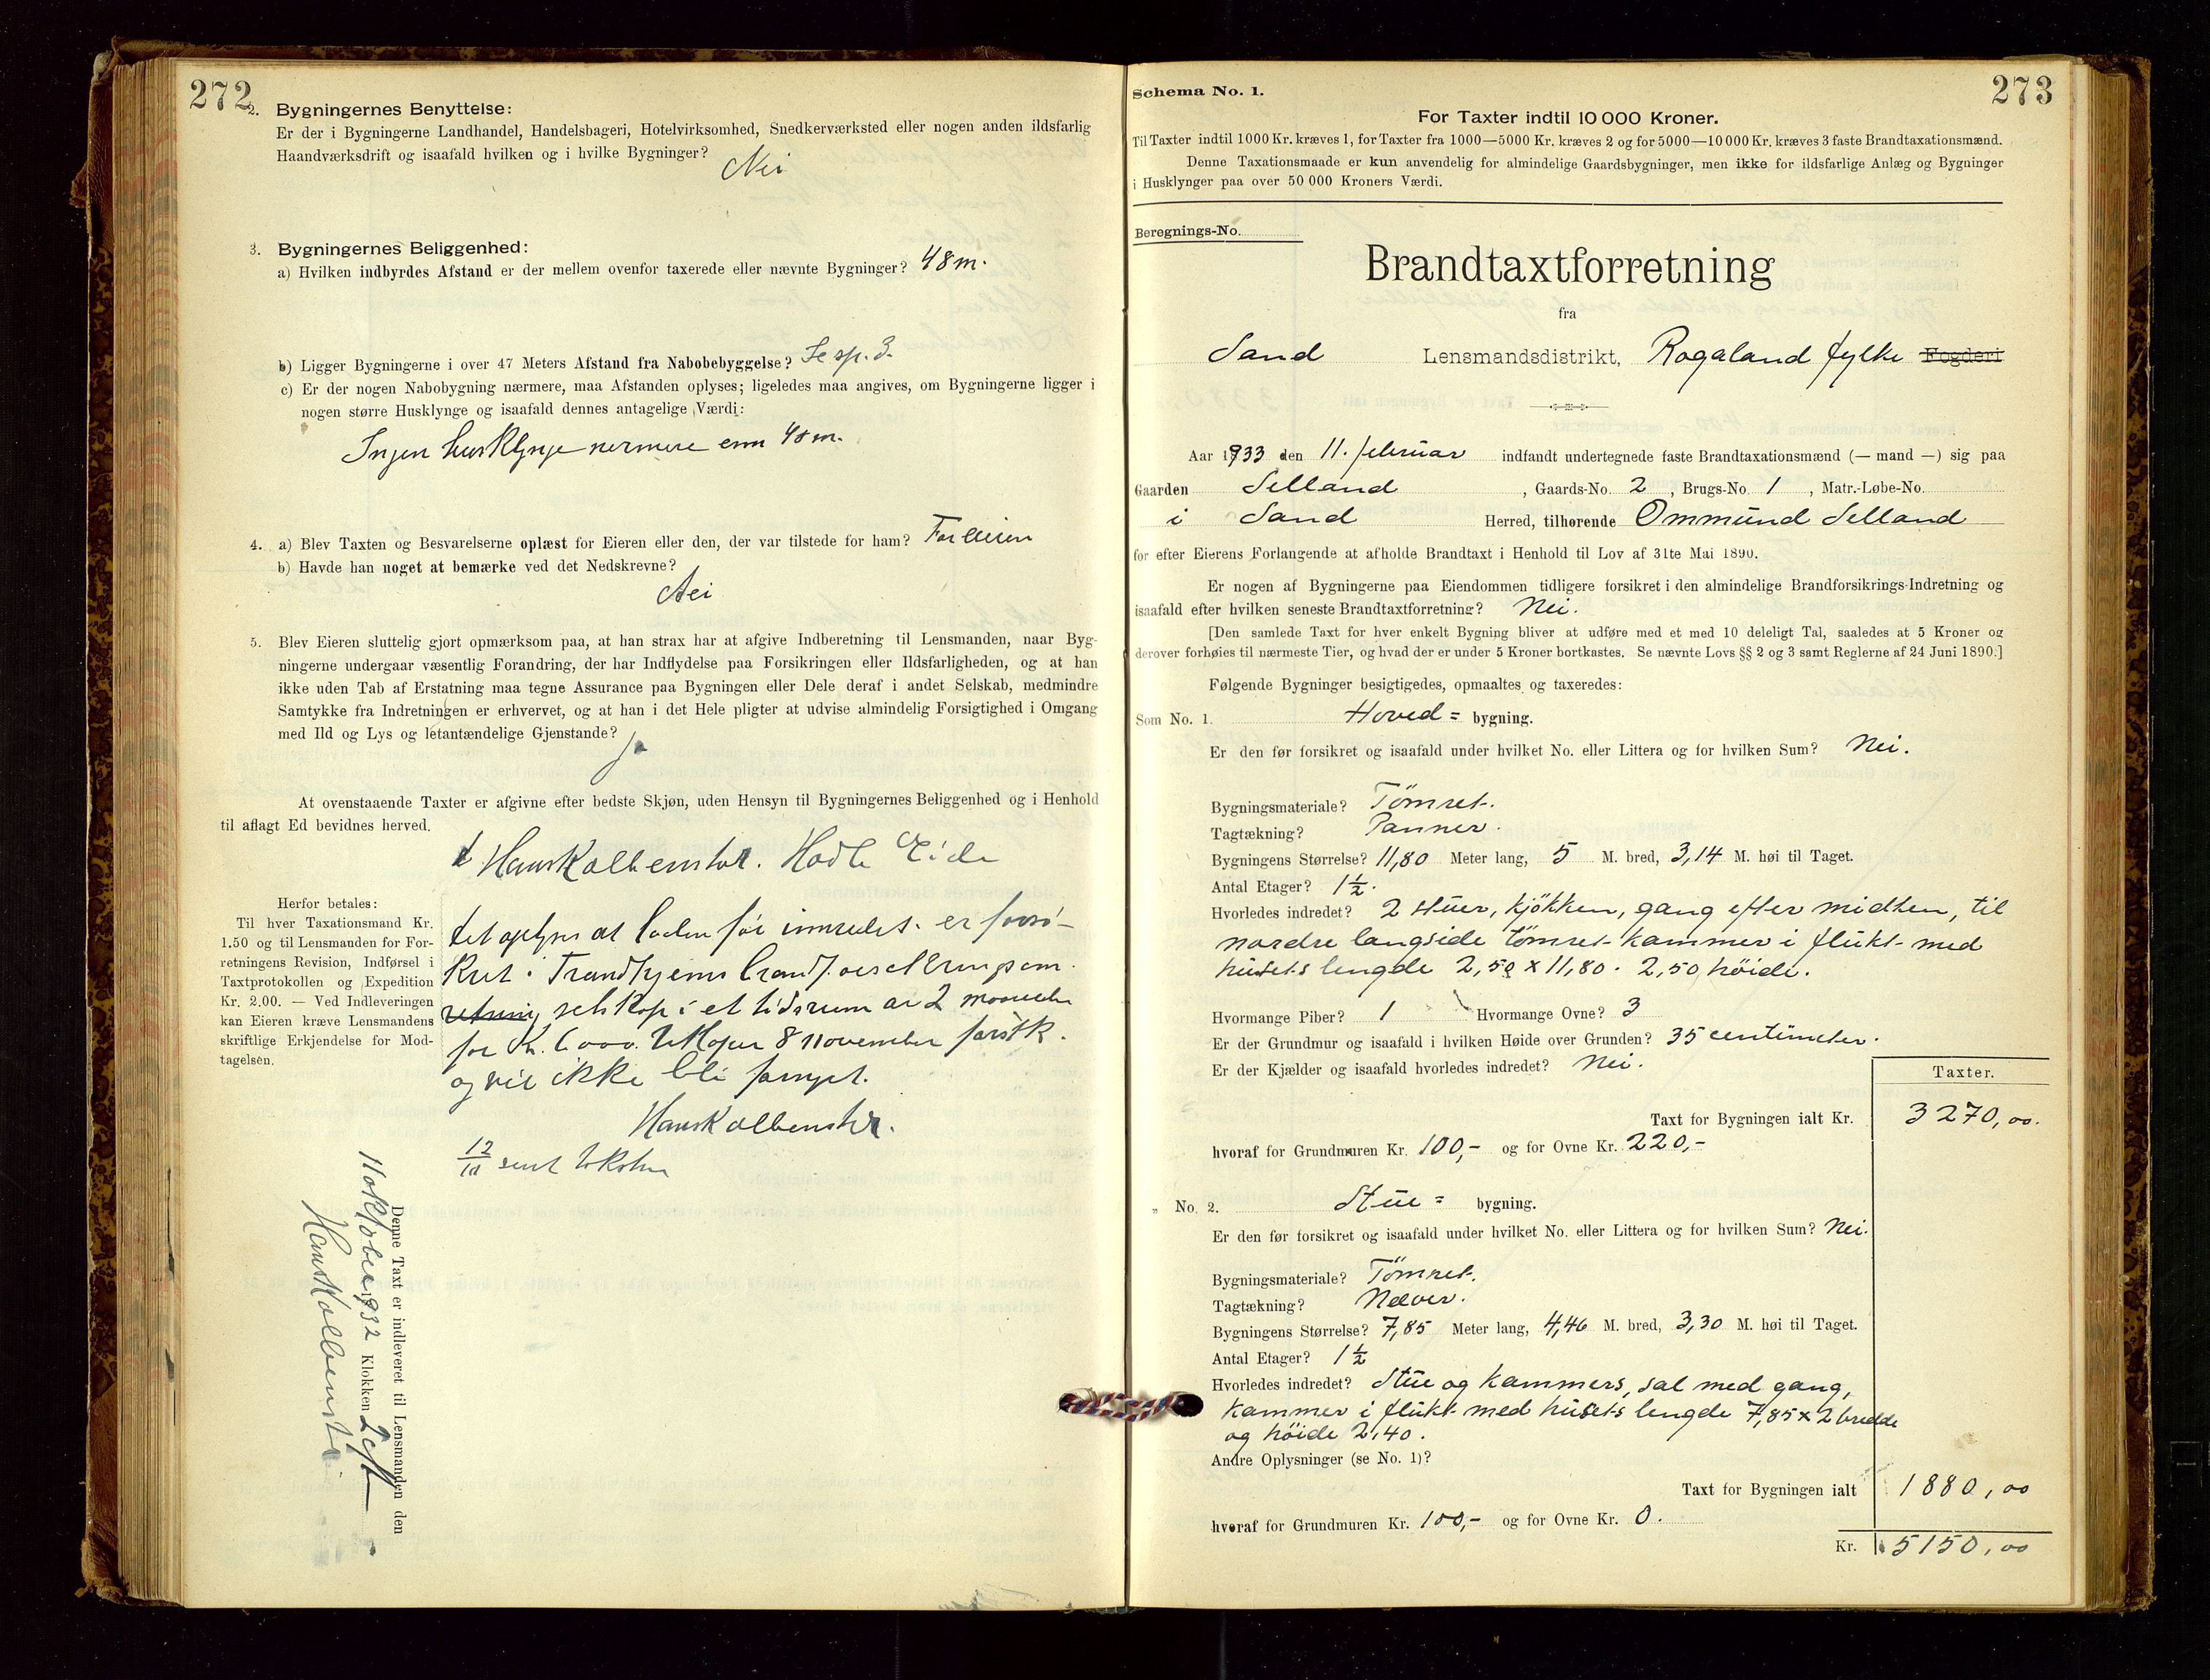 272
2. Bygningernes Benyttelse:
Er der i Bygningerne Landhandel, Handelsbageri, Hotelvirksomhed, Snedkerværksted eller nogen anden ildsfarlig
Haandværksdrift og isaafald hvilken og i hvilke Bygninger? Nei
3. Bygningernes Beliggenhed:
a) Hvilken indbyrdes Afstand er der mellem ovenfor taxerede eller nævnte Bygninger? 48 m.
b) Ligger Bygningerne i over 47 Meters Afstand fra Nabobebyggelse? Se sp. 3.
c) Er der nogen Nabobygning nærmere, maa Afstanden oplyses; ligeledes maa angives, om Bygningerne ligger i
nogen større Husklynge og isaafald dennes antagelige Værdi:
Ingen husklynge nermere enn 48 m.
4. a) Blev Taxten og Besvarelserne oplæst for Eieren eller den, der var tilstede for ham? For eieren
b) Havde han noget at bemærke ved det Nedskrevne?
Nei
5. Blev Eieren sluttelig gjort opmærksom paa, at han strax har at afgive Indberetning til Lensmanden, naar Byg-
ningerne undergaar væsentlig Forandring, der har Indflydelse paa Forsikringen eller Ildsfarligheden, og at han
ikke uden Tab af Erstatning maa tegne Assurance paa Bygningen eller Dele deraf i andet Selskab, medmindre
Samtykke fra Indretningen er erhvervet, og at han i det Hele pligter at udvise almindelig Forsigtighed i Omgang
med Ild og Lys og letantændelige Gjenstande? Ja
At ovenstaaende Taxter er afgivne efter bedste Skjøn, uden Hensyn til Bygningernes Beliggenhed og i Henhold
til aflagt Ed bevidnes herved.
Hans Kolbenstvt. Hodle Eide
Herfor betales:
Til hver Taxationsmand Kr.
1.50 og til Lensmanden for For-
retningens Revision, Indførsel i
Taxtprotokollen og Expedition
Kr. 2.00. — Ved Indleveringen
kan Eieren kræve Lensmandens
skriftlige Erkjendelse for Mod-
tagelsen.
det oplyses at loden før innredet er forsi-
kret i Trondhjems brandforsikrings
selskap i et tidsrum av 2 maaneder
for Kr. 6000. Utløper 8 november førstk.
og vil ikke bli fornyet.
Hans Kolbenstvt.
12/10 sent
Denne Taxt er indleveret til Lensmanden den
11 oktober 1932 Klokken 2 eft
Hans Kolbenstvt
273
Schema No. 1.
For Taxter indtil 10 000 Kroner.
Til Taxter indtil 1000 Kr. kræves 1, for Taxter fra 1000—5000 Kr. kræves 2 og for 5000—10 000 Kr. kræves 3 faste Brandtaxationsmænd.
Denne Taxationsmaade er kun anvendelig for almindelige Gaardsbygninger, men ikke for ildsfarlige Anlæg og Bygninger
i Husklynger paa over 50 000 Kroners Værdi.
Beregnings-No.
Brandtaxtforretning
fra
Sand Lensmandsdistrikt, Rogaland fylke Fogderi
Aar 1933 den 11. februar indfandt undertegnede faste Brandtaxationsmænd (— mand —) sig paa
Gaarden Selland, Gaards-No. 2, Brugs-No. 1, Matr.-Løbe-No.
i Sand Herred, tilhørende Ommund Selland
for efter Eierens Forlangende at afholde Brandtaxt i Henhold til Lov af 31te Mai 1890.
Er nogen af Bygningerne paa Eiendommen tidligere forsikret i den almindelige Brandforsikrings-Indretning og
isaafald efter hvilken seneste Brandtaxtforretning? Nei.
[Den samlede Taxt for hver enkelt Bygning bliver at udføre med et med 10 deleligt Tal, saaledes at 5 Kroner og
derover forhøies til nærmeste Tier, og hvad der er under 5 Kroner bortkastes. Se nævnte Lovs §§ 2 og 3 samt Reglerne af 24 Juni 1890.]
Følgende Bygninger besigtigedes, opmaaltes og taxeredes:
Som No. 1. Hoved= bygning.
Er den før forsikret og isaafald under hvilket No. eller Littera og for hvilken Sum? Nei.
Bygningsmateriale? Tömret.
Tagtækning? Panner.
Bygningens Størrelse? 11,80 Meter lang, 5 M. bred, 3,14 M. høi til Taget.
Antal Etager? 1 1/2.
Hvorledes indredet? 2 stuer, kjökken, gang efter midten, til
nordre langside tömret kammer i flukt med
husets lengde 2,50 x 11,80. 2,50 höide.
Hvormange Piber? 1 Hvormange Ovne? 3
Er der Grundmur og isaafald i hvilken Høide over Grunden? 35 centimeter.
Er der Kjælder og isaafald hvorledes indredet? Nei.
Taxter.
Taxt for Bygningen ialt Kr. 3270,00.
hvoraf for Grundmuren Kr. 100,- og for Ovne Kr. 220,-
„ No. 2. Stue= bygning.
Er den før forsikret og isaafald under hvilket No. eller Littera og for hvilken Sum? Nei.
Bygningsmateriale? Tömret.
Tagtækning? Næver.
Bygningens Størrelse? 7,85 Meter lang, 4,46 M. bred, 3,30 M. høi til Taget.
Antal Etager? 1 1/2
Hvorledes indredet? Stue og kammers, sal med gang,
kammer i flukt med husets lengde 7,85 x 2 bredde
og höide 2,40.
Andre Oplysninger (se No. 1)?
Taxt for Bygningen ialt 1880,00
hvoraf for Grundmuren Kr. 100,- og for Ovne Kr. 0.
Kr. 5150,00